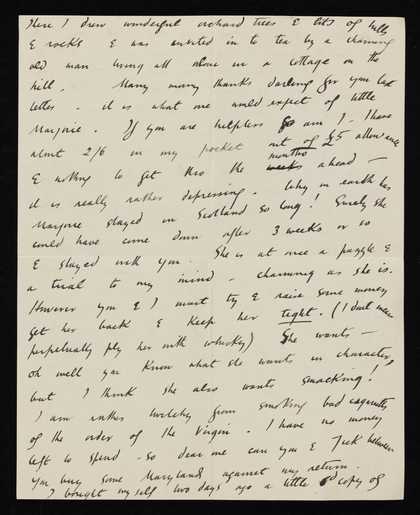 Here I drew wonderful orchard trees & bits of hills
& rocks & was invited in to tea by a charming
old man living all alone in a cottage on the
hill. Many many thanks darling for your last
letter. it is what one would expect of little
Marjorie. If you are helpless so am I - I have
about 2/6 in my pocket out of £5 allowance
& nothing to get thro the weeks months ahead -
it is really rather depressing. Why on earth has
Marjorie stayed in Scotland so long! Surely she
could have come down after 3 weeks or so
& stayed with you. She is at once a puzzle &
a trial to my mind - charming as she is.
However you & I must try & raise some money
get her back & keep her tight. (I don't mean
perpetually ply her with whiskey) She wants -
oh well you know what she wants in character,
but I think she also wants smacking!
I am rather from smoking bad cigarettes
of the order of the Virgin. I have no money
left to spend - so dear me can you & Jack between
you buy some Maryland against my return.
I bought myself two days ago a little 6d copy of